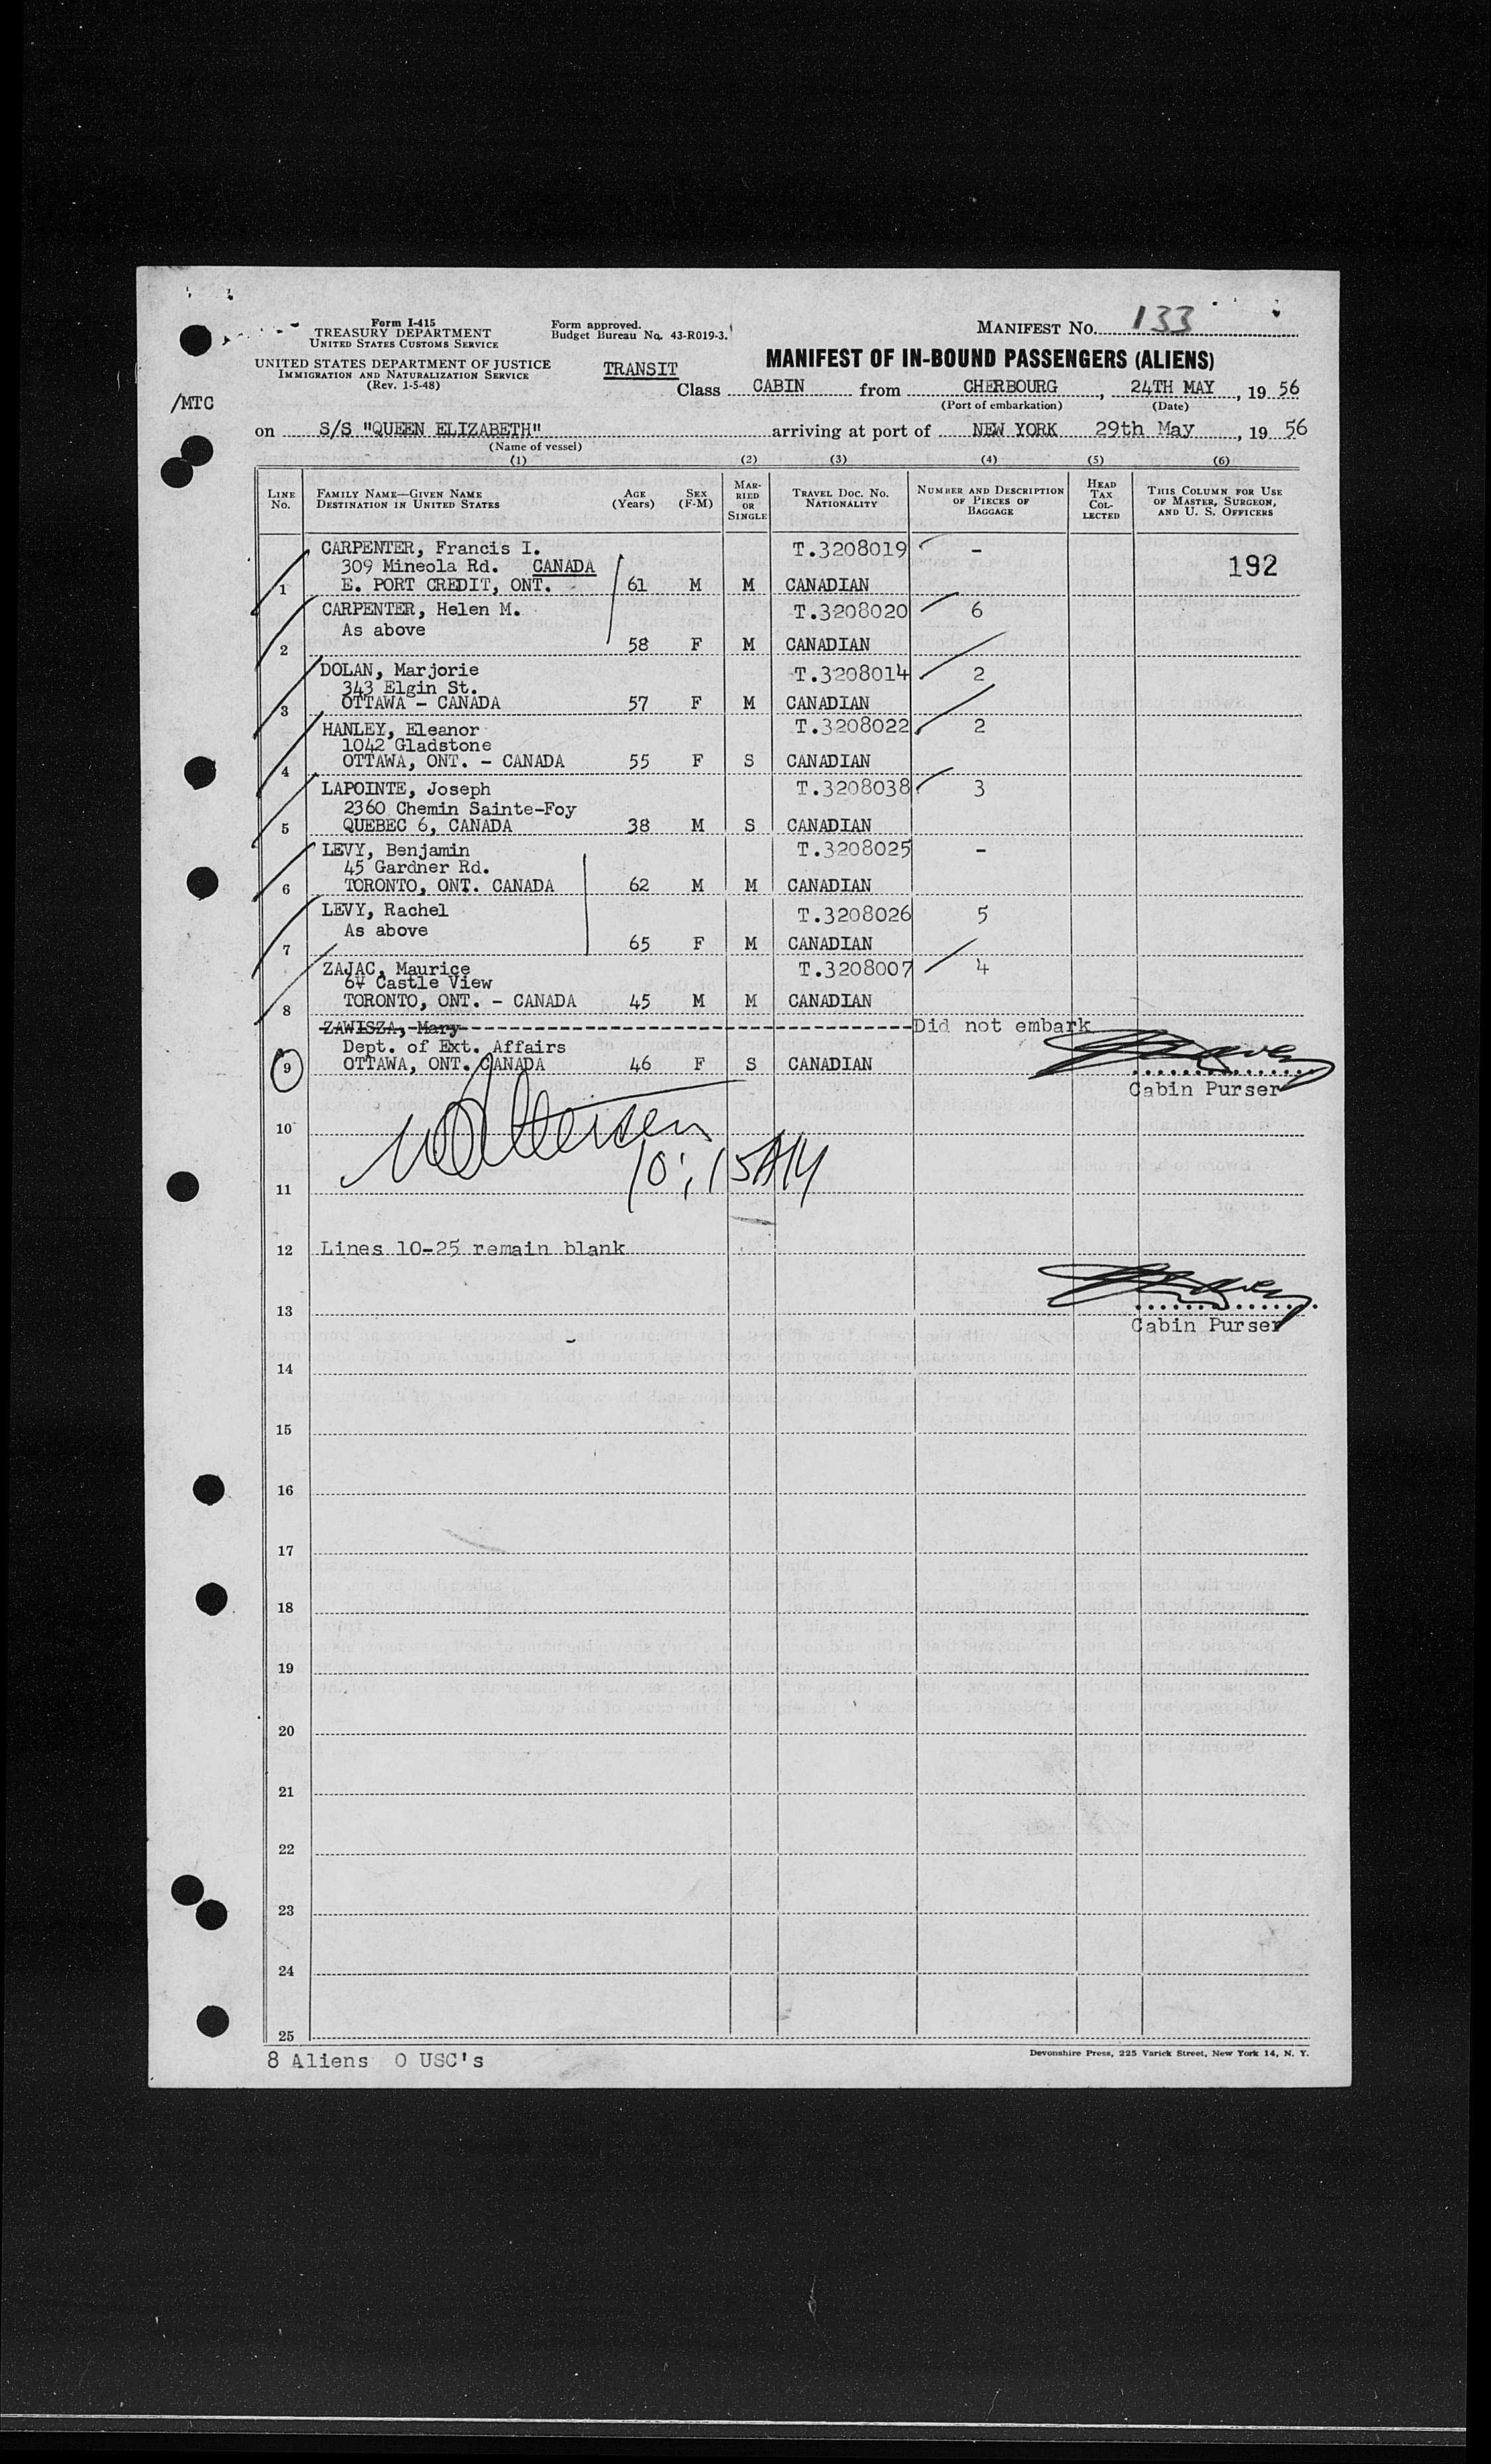 Form I-415
TREASURY DEPARTMENT
UNITED STATES CUSTOMS SERVICE
UNITED STATES DEPARTMENT OF JUSTICE
IMMIGRATION AND NATURALIZATION SERVICE
(Rev. 1-5-48)
Form approved.
Budget Bureau No. 43-R019-3.
MANIFEST NO. 133
MANIFEST OF IN-BOUND PASSENGERS (ALIENS)
TRANSIT
Class CABIN from CHERBOURG, 24TH MAY, 19 56
(Port of embarkation) (Date)
/MTC
on S/S "QUEEN ELIZABETH" arriving at port of NEW YORK 29th May, 19 56
(Name of vessel)
(1) (2) (3) (4) (5) (6)
LINE NO. FAMILY NAME—GIVEN NAME DESTINATION IN UNITED STATES AGE (Years) SEX (F-M) MARRIED OR SINGLE TRAVEL DOC. NO. NATIONALITY NUMBER AND DESCRIPTION OF PIECES OF BAGGAGE HEAD TAX COLLECTED THIS COLUMN FOR USE OF MASTER, SURGEON, AND U. S. OFFICERS
CARPENTER, Francis I. T.3208019 -
309 Mineola Rd. CANADA 192
1 E. PORT CREDIT, ONT. 61 M M CANADIAN
CARPENTER, Helen M. T.3208020 6
As above
2 58 F M CANADIAN
DOLAN, Marjorie T.3208014 2
343 Elgin St.
3 OTTAWA - CANADA 57 F M CANADIAN
HANLEY, Eleanor T.3208022 2
1042 Gladstone
4 OTTAWA, ONT. - CANADA 55 F S CANADIAN
LAPOINTE, Joseph T.3208038 3
2360 Chemin Sainte-Foy
5 QUEBEC 6, CANADA 38 M S CANADIAN
LEVY, Benjamin T.3208025 -
45 Gardner Rd.
6 TORONTO, ONT. CANADA 62 M M CANADIAN
LEVY, Rachel T.3208026 5
As above
7 65 F M CANADIAN
ZAJAC, Maurice T.3208007 4
Castle View
8 TORONTO, ONT. - CANADA 45 M M CANADIAN
ZAWISZA, Mary Did not embark
Dept. of Ext. Affairs
9 OTTAWA, ONT. CANADA 46 F S CANADIAN
Cabin Purser
10
10:15AM
11
12 Lines 10-25 remain blank
13
Cabin Purser
14
15
16
17
18
19
20
21
22
23
24
25
8 Aliens 0 USC's
Devonshire Press, 225 Varick Street, New York 14, N. Y.